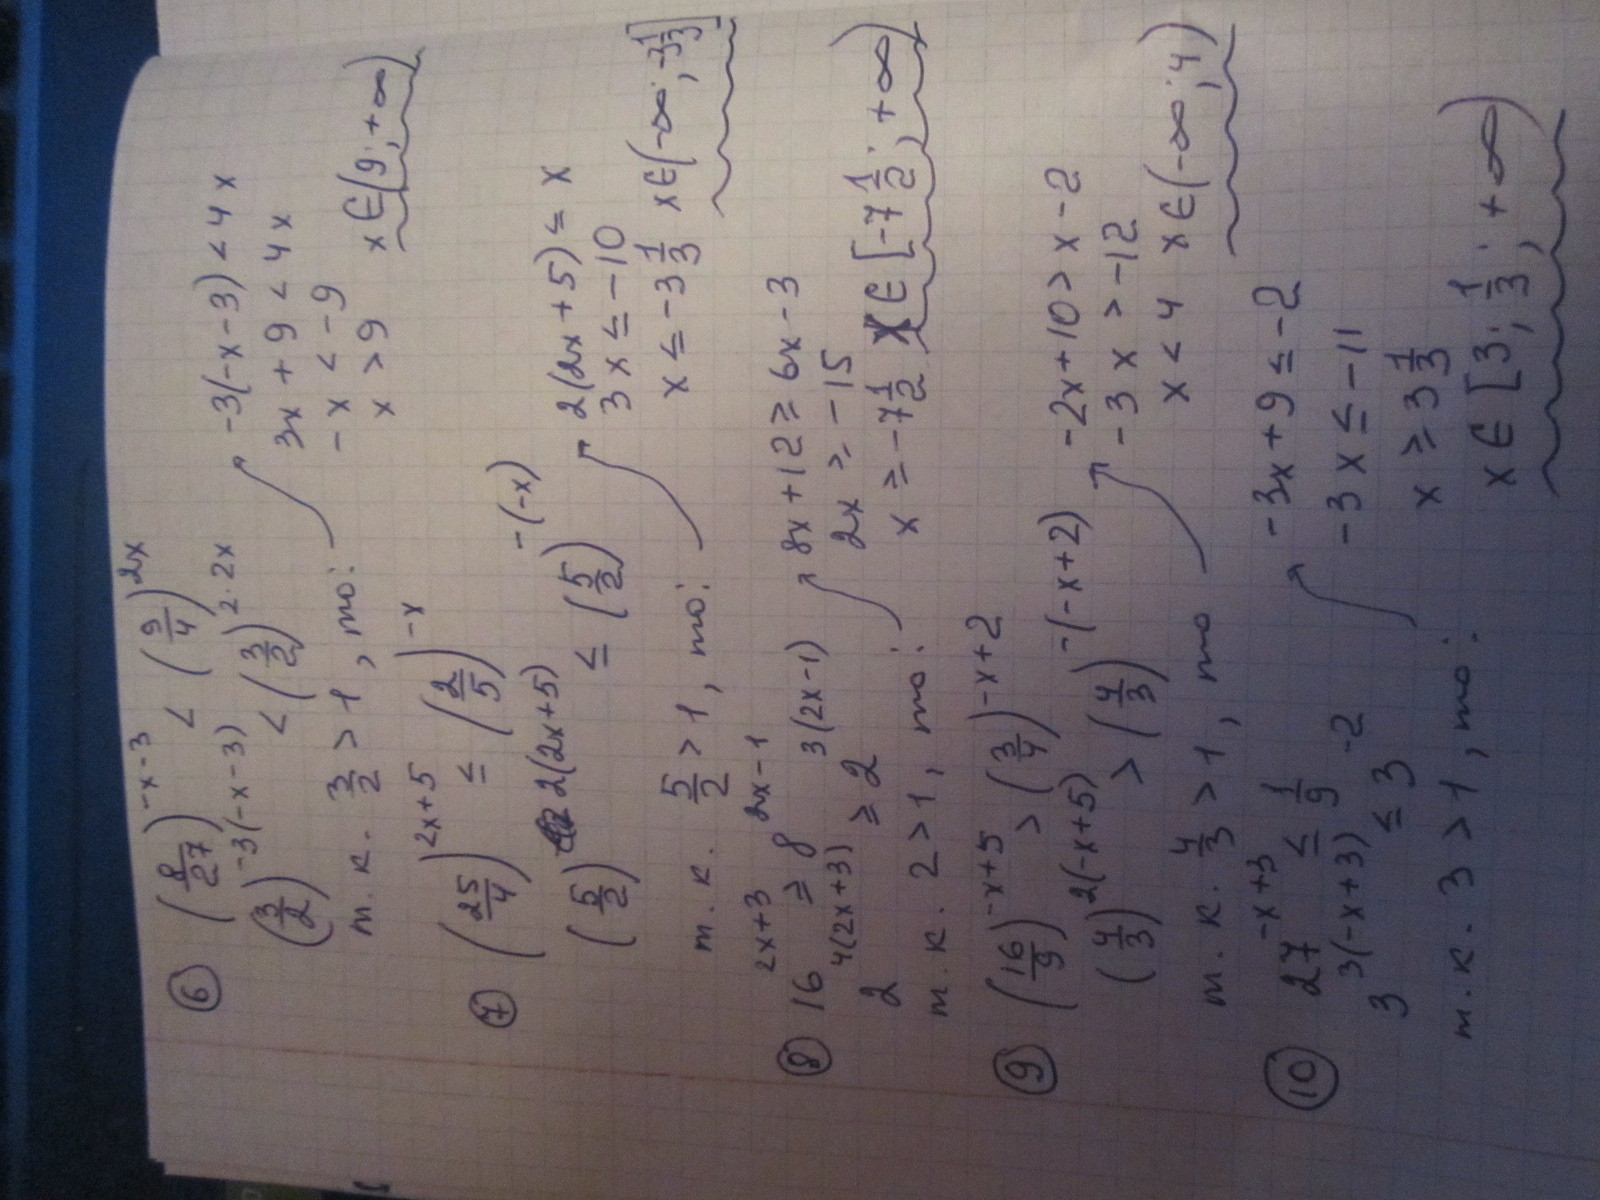 ⑥ (8/27)^(-x-3) < (9/4)^(2x)
(3/2)^(-3(-x-3)) < (3/2)^(2·2x)
т.к. 3/2 > 1, то:
-3(-x-3) < 4x
3x + 9 < 4x
-x < -9
x > 9 x ∈ (9; +∞)
⑦ (25/4)^(2x+5) ≤ (2/5)^(-x)
(5/2)^(2(2x+5)) ≤ (5/2)^(-(-x))
т.к. 5/2 > 1, то:
2(2x+5) ≤ x
3x ≤ -10
x ≤ -3 1/3 x ∈ (-∞; -3 1/3]
⑧ 16^(2x+3) ≥ 8^(2x-1)
2^(4(2x+3)) ≥ 2^(3(2x-1))
т.к. 2 > 1, то:
8x + 12 ≥ 6x - 3
2x ≥ -15
x ≥ -7 1/2 x ∈ [-7 1/2; +∞)
⑨ (16/9)^(-x+5) > (3/4)^(-x+2)
(4/3)^(2(-x+5)) > (4/3)^(-(-x+2))
т.к. 4/3 > 1, то
-2x + 10 > x - 2
-3x > -12
x < 4 x ∈ (-∞; 4)
⑩ 27^(-x+3) ≤ 1/9
3^(3(-x+3)) ≤ 3^(-2)
т.к. 3 > 1, то:
-3x + 9 ≤ -2
-3x ≤ -11
x ≥ 3 1/3
x ∈ [3; 1/3; +∞)